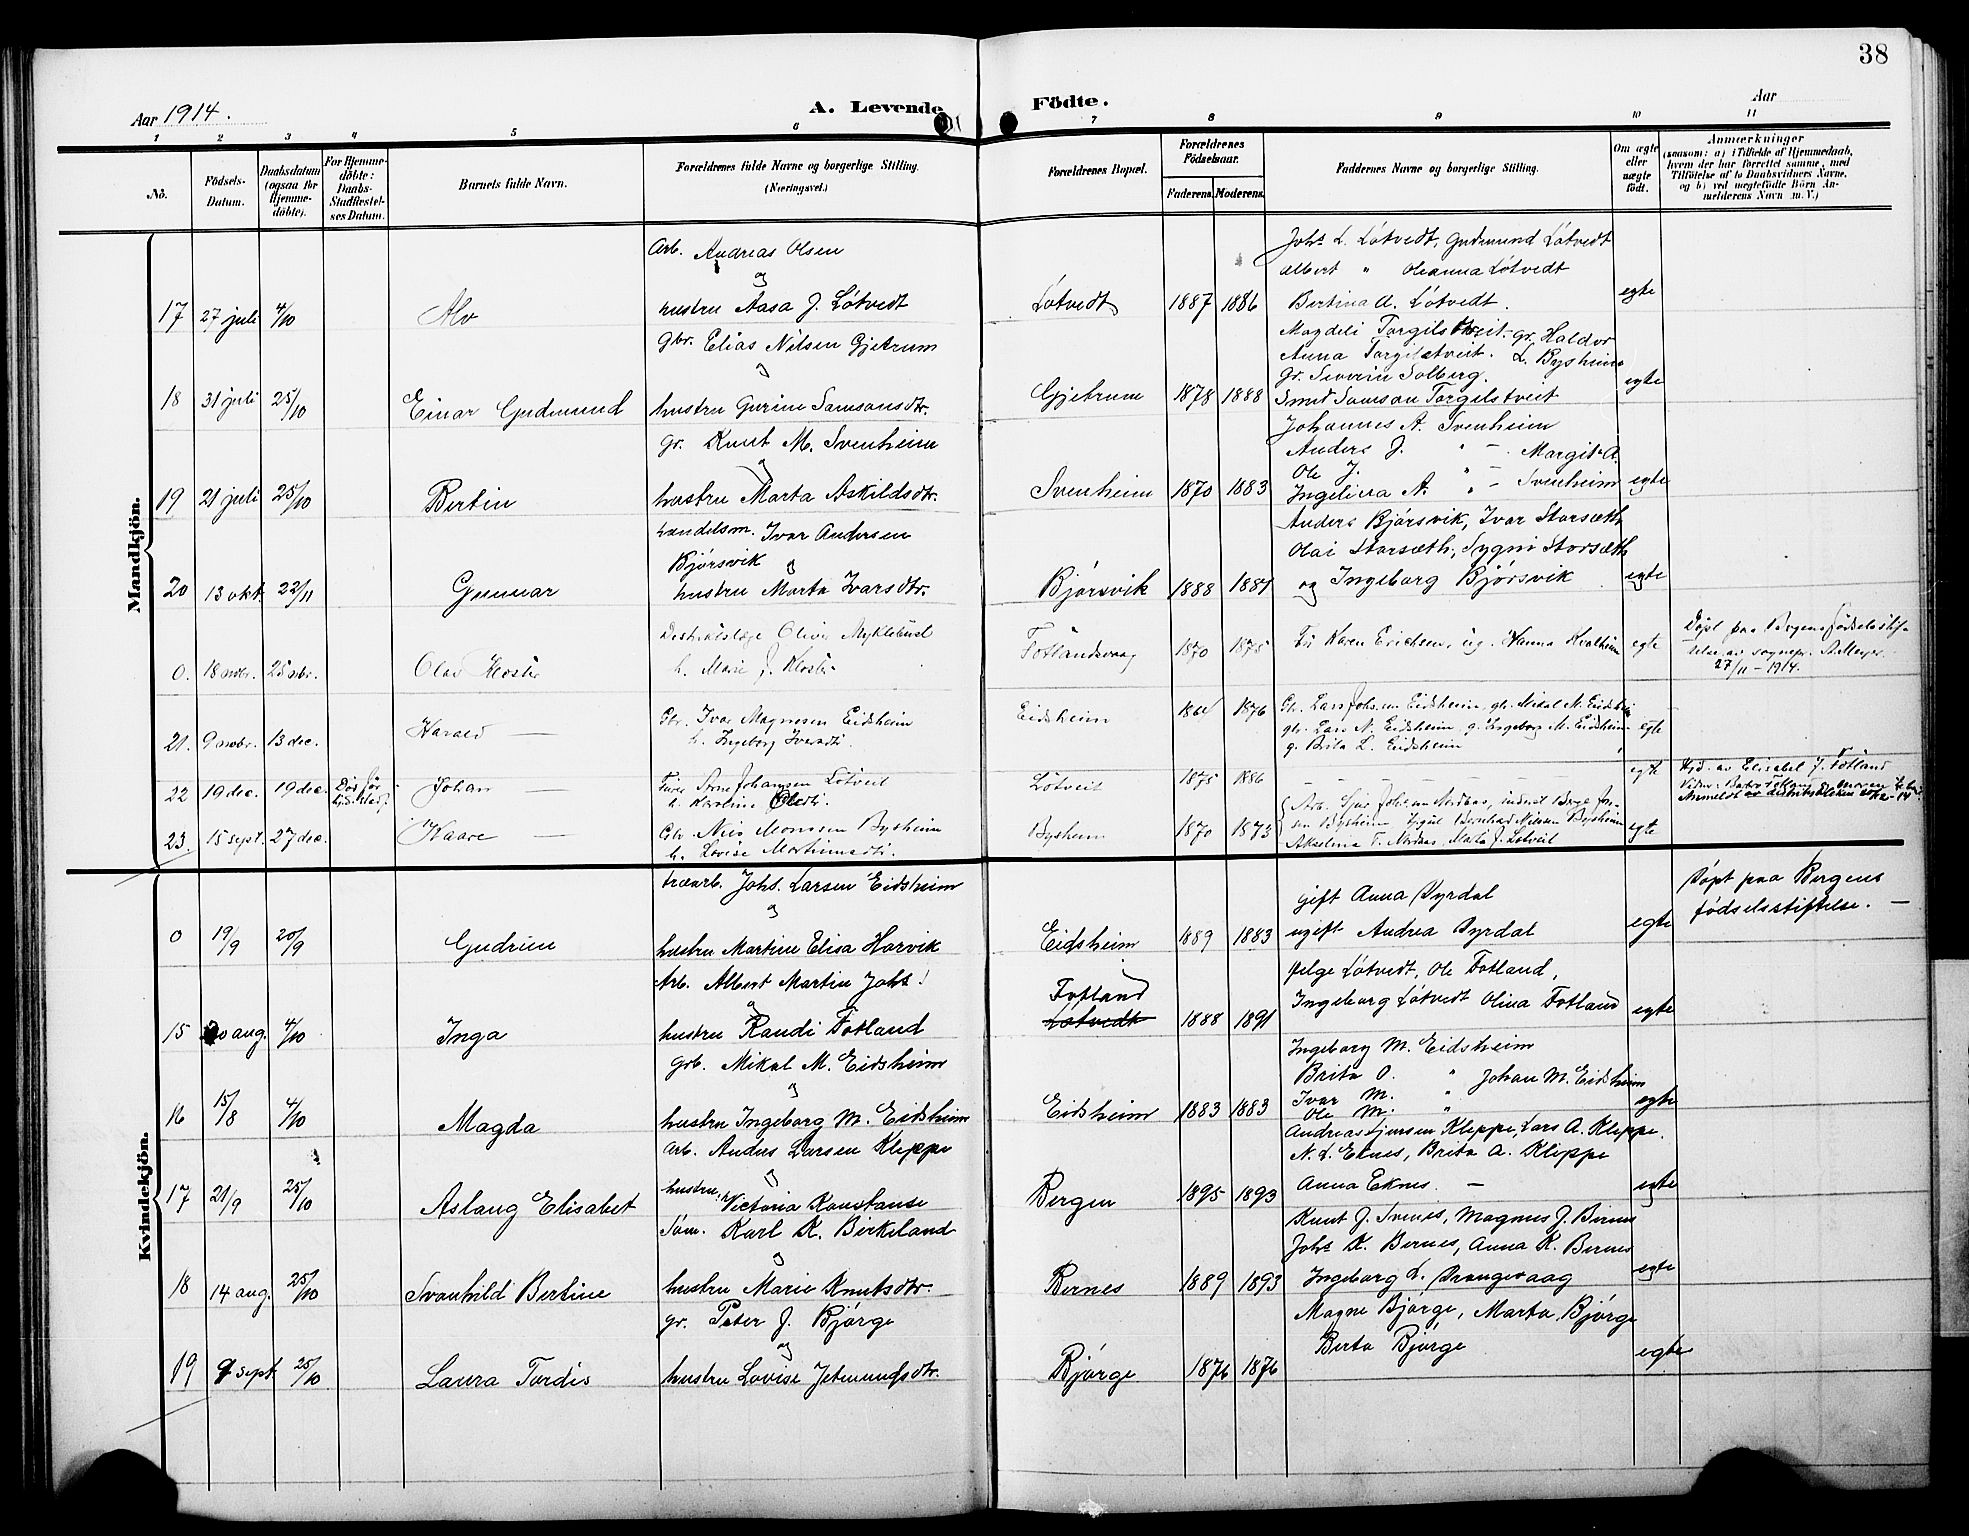 38
Aar 1914.
A. Levende Fódte.
Aar
1 2 3 4 5 6 7 8 9 10 11
No.
Fódsels-Datum.
Daabsdatum (ogsaa for Hjemme-döbte).
For Hjemme-döbte: Daabs-Stadfæstel-ses Datum.
Barnets fulde Navn.
Forældrenes fulde Navne og borgerlige Stilling. (Næringsvei.)
Forældrenes Bopæl.
Forældrenes Fódselsaar.
Faderens. Moderens.
Faddernes Navne og borgerlige Stilling.
Om ægte eller uægte födt.
Anmærkninger
(saasom: a) i Tilfælde af Hjemmedaab, hvem der har forrettet samme, med Tilföielse af to Daabsvidners Navne, og b) ved uægtefödte Börn An-melderens Navn m. V.)
Mandkjön.
17 27 juli 4/10 Alv
Arb. Andreas Olsen
og
hustru Aasa J. Lótvedt
Lótvedt 1887 1886
Johs L. Lótvedt, Gudmund Lótvedt
Albert " Oleanna Lótvedt
Bertina A. Lótvedt.
egte
18 31 juli 25/10 Einar Gudmund
Gbr. Elias Nilsen Gjetrum
og
hustru Gurine Samsonsdtr.
Gjetrum 1878 1888
Magdeli Torgilstveit - gr. Haldor
Anna Torgilstveit. L. Bysheim
Gr. Severin Solberg.
Smed Samson Torgilstveit
egte
19 21 juli 25/10 Bertin
gr. Knut M. Svenheim
og
hustru Marta Askildsdtr.
Svenheim 1870 1883
Johannes A. Svenheim
Anders J. " - Margit A.
Ole J. " -
Ingelina A. " - Svenheim
egte
20 13 okt. 22/11 Gunnar
handelsm. Ivar Andersen
Bjórsvik og
hustru Marta Ivarsdtr.
Bjórsvik 1888 1887
Anders Bjórsvik, Ivar Storsæth
Olai Storsæth, Sygni Storsæth
og Ingeborg Bjórsvik
egte
0. 18 novbr. 25 nbr. Olav Kloster
Distriktslæge Oliver Myklebust
h. Marie J. Kloster
Fotlandsvaag 1870 1875
Fru Karen Erichsen, ug. Hanna Kvalheim
egte
Döpt paa Bergens födselsstif-
telse av sognepr. A. Meyer
27/11 - 1914.
21. 9 novbr. 13 dec. Harald
Gbr. Ivar Magnesen Eidsheim
h. Ingeborg Iversdtr.
Eidsheim 1864 1876
Gbr. Lars Johnsen Eidsheim, gbr. Mikal M. Eidsheim
gbr. Lars N. Eidsheim, g. Ingeborg M. Eidsheim
g. Brita L. Eidsheim
egte
22 19 dec. 19 dec. Död för Johan
Arne Johannsen Lötveit
h. Karoline
Lötveit 1875 1886
egte
Hjd. av Elisabet J. Fotland
Anmeldt av distriktslægen
23. 15 sept. 27 dec. Kaare
Gbr. Nils Monssen Bysheim
h. Lovise Mortinusdtr.
Bysheim 1870 1873
sen Bysheim Bernhard Nilsen Bysheim
Akselina T. Nordaas, Marta J. Lötveit
egte
Kvindekjön.
0 19/9 20/9 Gudrun
træarb. Johs. Larsen Eidsheim
og
hustru Martine Elisa Horvik
Eidsheim 1889 1883
gift Anna Dyrdal
ugift Andrea Dyrdal
egte
Döpt paa Bergens
födselsstiftelse. -
15 20 aug. 4/10 Inga
Arb. Albert Martin Johs!
og
hustru Randi Fotland
Fotland
Lótvedt 1888 1891
Helge Lótvedt, Ole Fotland,
Ingeborg Lótvedt Olina Fotland
egte
16 15/8 4/10 Magda
Grb. Mikal M. Eidsheim
og
hustru Ingeborg M. Eidsheim
Eidsheim 1883 1883
Ingeborg M. Eidsheim
Brita O. " Johan M. Eidsheim
Ivar M. "
Ole M. "
egte
17 21/9 25/10 Aslaug Elisabet
Arb. Anders Larsen Kleppe
og
hustru Victoria Konstanse
Bergen 1895 1893
Andreas Sjursen Kleppe, Lars A. Kleppe.
N. L. Eknes, Brita A. Kleppe
Anna Eknes. -
egte
18 14 aug. 25/10 Svanhild Bertine
Söm. Karl K. Birkeland
og
hustru Marie Knutsdtr.
Bernes 1889 1893
Knut J. Svenes, Magnus J. Bernes
Johs K. Bernes, Anna K. Bernes
Ingeborg L. Drangevaag
egte
19 9 sept. 25/10 Laura Tordis
gr. Peter J. Bjórge
og
hustru Lovise Jetmundsdtr.
Bjórge 1876 1876
Magne Bjórge, Marta Bjórge
Berta Bjórge
egte